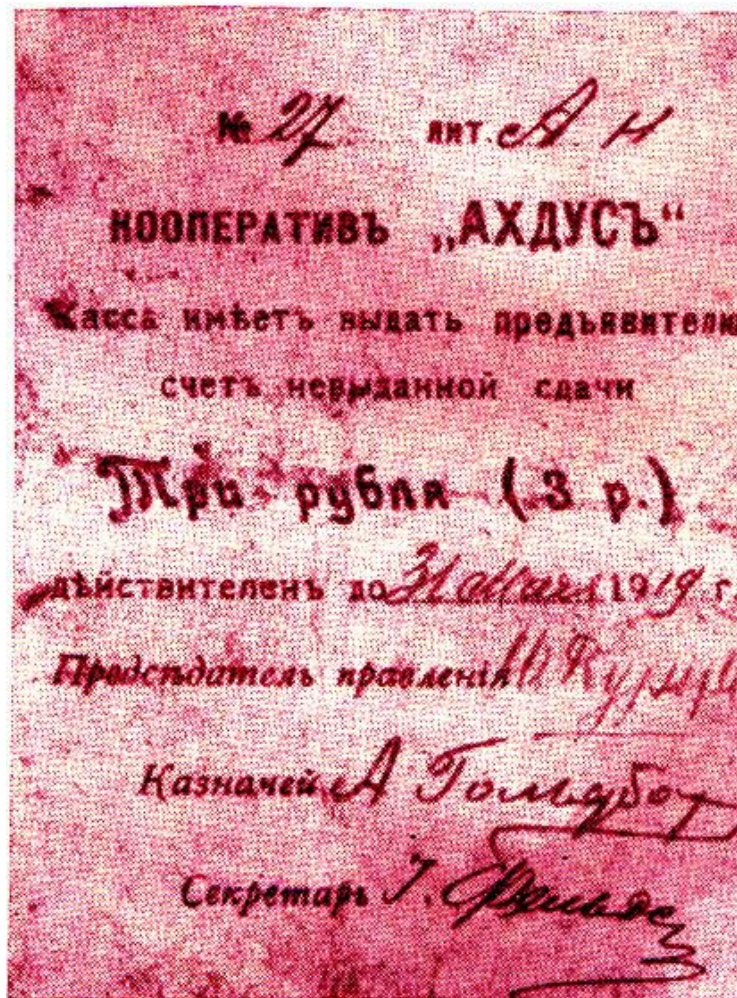 № 27 лит. А н
КООПЕРАТИВЪ „АХДУСЪ“
Касса имѣетъ выдать предъявителю
счетъ невыданной сдачи
Три рубля (3 р.)
дѣйствителенъ до 31 Мая 1919 г.
Предсѣдатель правленія
Казначей А
Секретарь